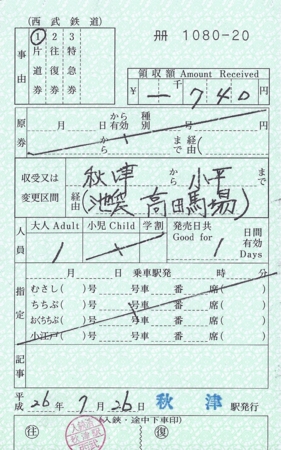 (西武鉄道)
冊 1080-20
事由 ①片道券 2往復券 3特急券
領収額 Amount Received
¥ 千 740 円
原券 月 日から有効 種別 号
から まで 経由( )
収受又は変更区間 秋津から 小平まで
経由(池袋 高田馬場)
人員 大人Adult 小児Child 学割 発売日共 Good for
1 1 日間有効 Days
指定 月 日 乗車駅発 時 分
むさし( )号 号車 番 席( )
ちちぶ( )号 号車 番 席( )
おくちちぶ( )号 号車 番 席( )
小江戸( )号 号車 番 席( )
記事
平成 26年 7月 26日 秋津 駅発行
(入鋏・途中下車印)
往 復